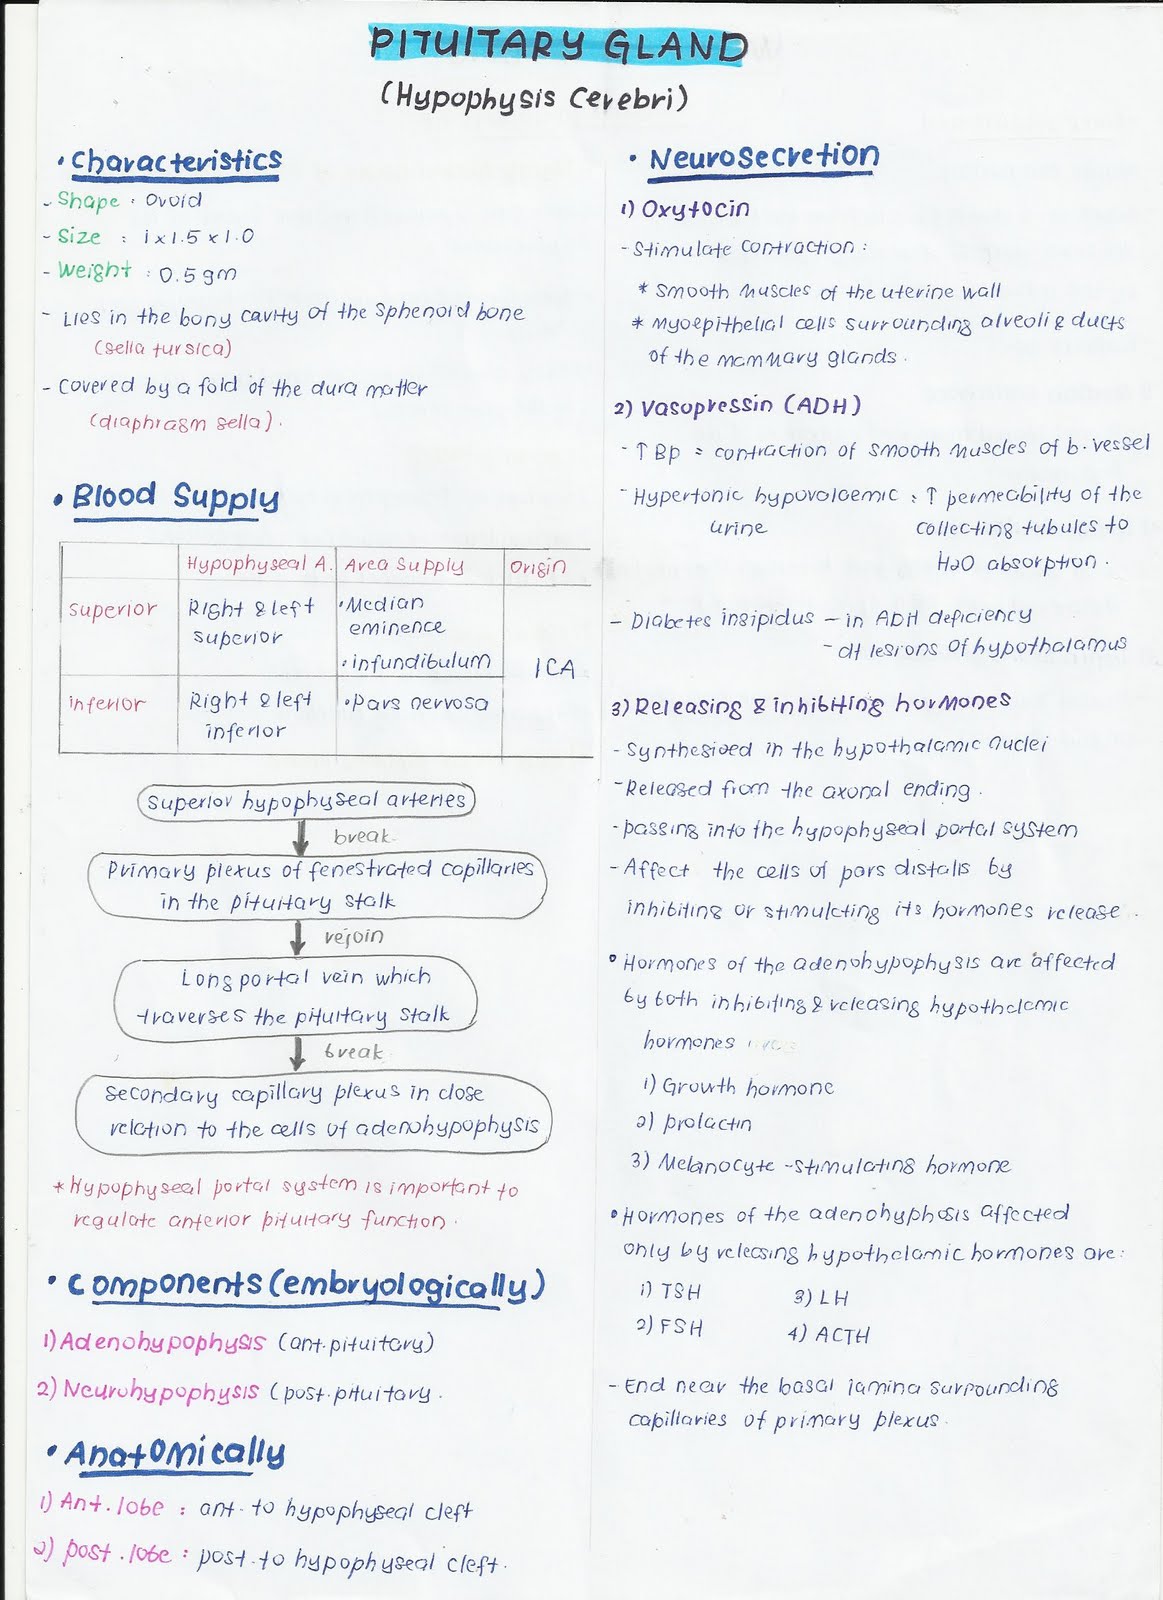 PITUITARY GLAND
(Hypophysis Cerebri)
• Characteristics
- Shape : Ovoid
- Size : 1x1.5x1.0
- Weight : 0.5 gm
- Lies in the bony cavity of the sphenoid bone
(sella tursica)
- Covered by a fold of the dura matter
(diaphragm sella).
• Blood Supply
Hypophyseal A. Area Supply Origin
superior Right & left • Median
superior eminence
• infundibulum ICA
inferior Right & left • Pars nervosa
inferior
Superior hypophyseal arteries
break
Primary plexus of fenestrated capillaries
in the pituitary stalk
rejoin
Long portal vein which
traverses the pituitary stalk
break
Secondary capillary plexus in close
relation to the cells of adenohypophysis
* Hypophyseal portal system is important to
regulate anterior pituitary function.
• Components (embryologically)
1) Adenohypophysis (ant.pituitary)
2) Neurohypophysis (post.pituitary.
• Anatomically
1) Ant.lobe : ant. to hypophyseal cleft
2) post.lobe : post.to hypophyseal cleft.
• Neurosecretion
1) Oxytocin
- Stimulate contraction :
* smooth muscles of the uterine wall
* Myoepithelial cells surrounding alveoli & ducts
of the mammary glands.
2) Vasopressin (ADH)
- ↑ Bp = contraction of smooth muscles of b.vessel
- Hypertonic hypovolaemic : ↑ permeability of the
urine collecting tubules to
H2O absorption.
- Diabetes insipidus - in ADH deficiency
- dt lesions of hypothalamus
3) Releasing & inhibiting hormones
- Synthesised in the hypothalamic nuclei
- Released from the axonal ending.
- passing into the hypophyseal portal system
- Affect the cells of pars distalis by
inhibiting or stimulating its hormones release.
• Hormones of the adenohypophysis are affected
by both inhibiting & releasing hypothalamic
hormones
1) Growth hormone
2) prolactin
3) Melanocyte-stimulating hormone
• Hormones of the adenohyphosis affected
only by releasing hypothalamic hormones are:
1) TSH 3) LH
2) FSH 4) ACTH
- End near the basal lamina surrounding
capillaries of primary plexus.